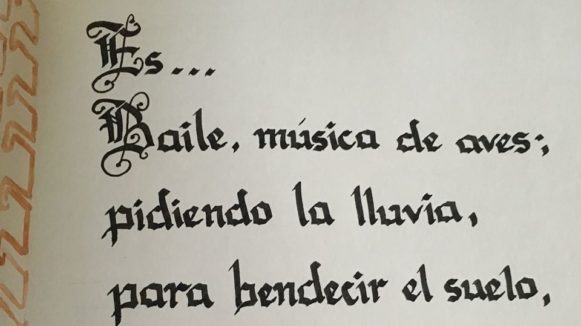 Es...
Baile, música de aves;
pidiendo la lluvia,
para bendecir el suelo,